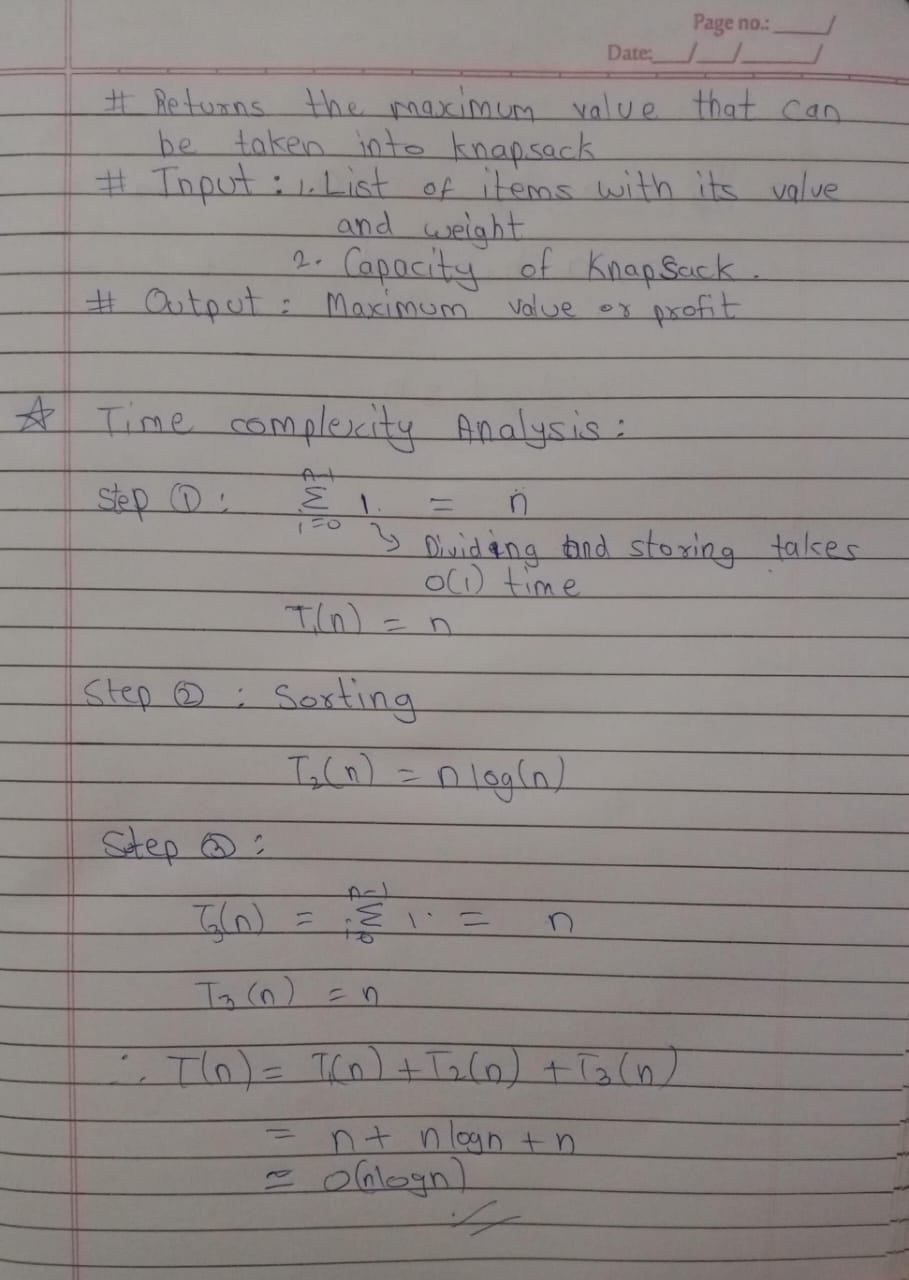 Page no.: ___/
Date: __/__/____/
# Returns the maximum value that can
be taken into knapsack
# Input : 1. List of items with its value
and weight
2. Capacity of KnapSack.
# Output : Maximum value or profit
☆ Time complexity Analysis :
Step ① : n-1 Σ i=0 1. = n
↳ Dividing and storing takes
O(1) time
T₁(n) = n
Step ② : Sorting
T₂(n) = n log(n)
Step ③ :
T₃(n) = n-1 Σ i=0 1. = n
T₃(n) = n
∴ T(n) = T₁(n) + T₂(n) + T₃(n)
= n + n logn + n
≈ O(nlogn)